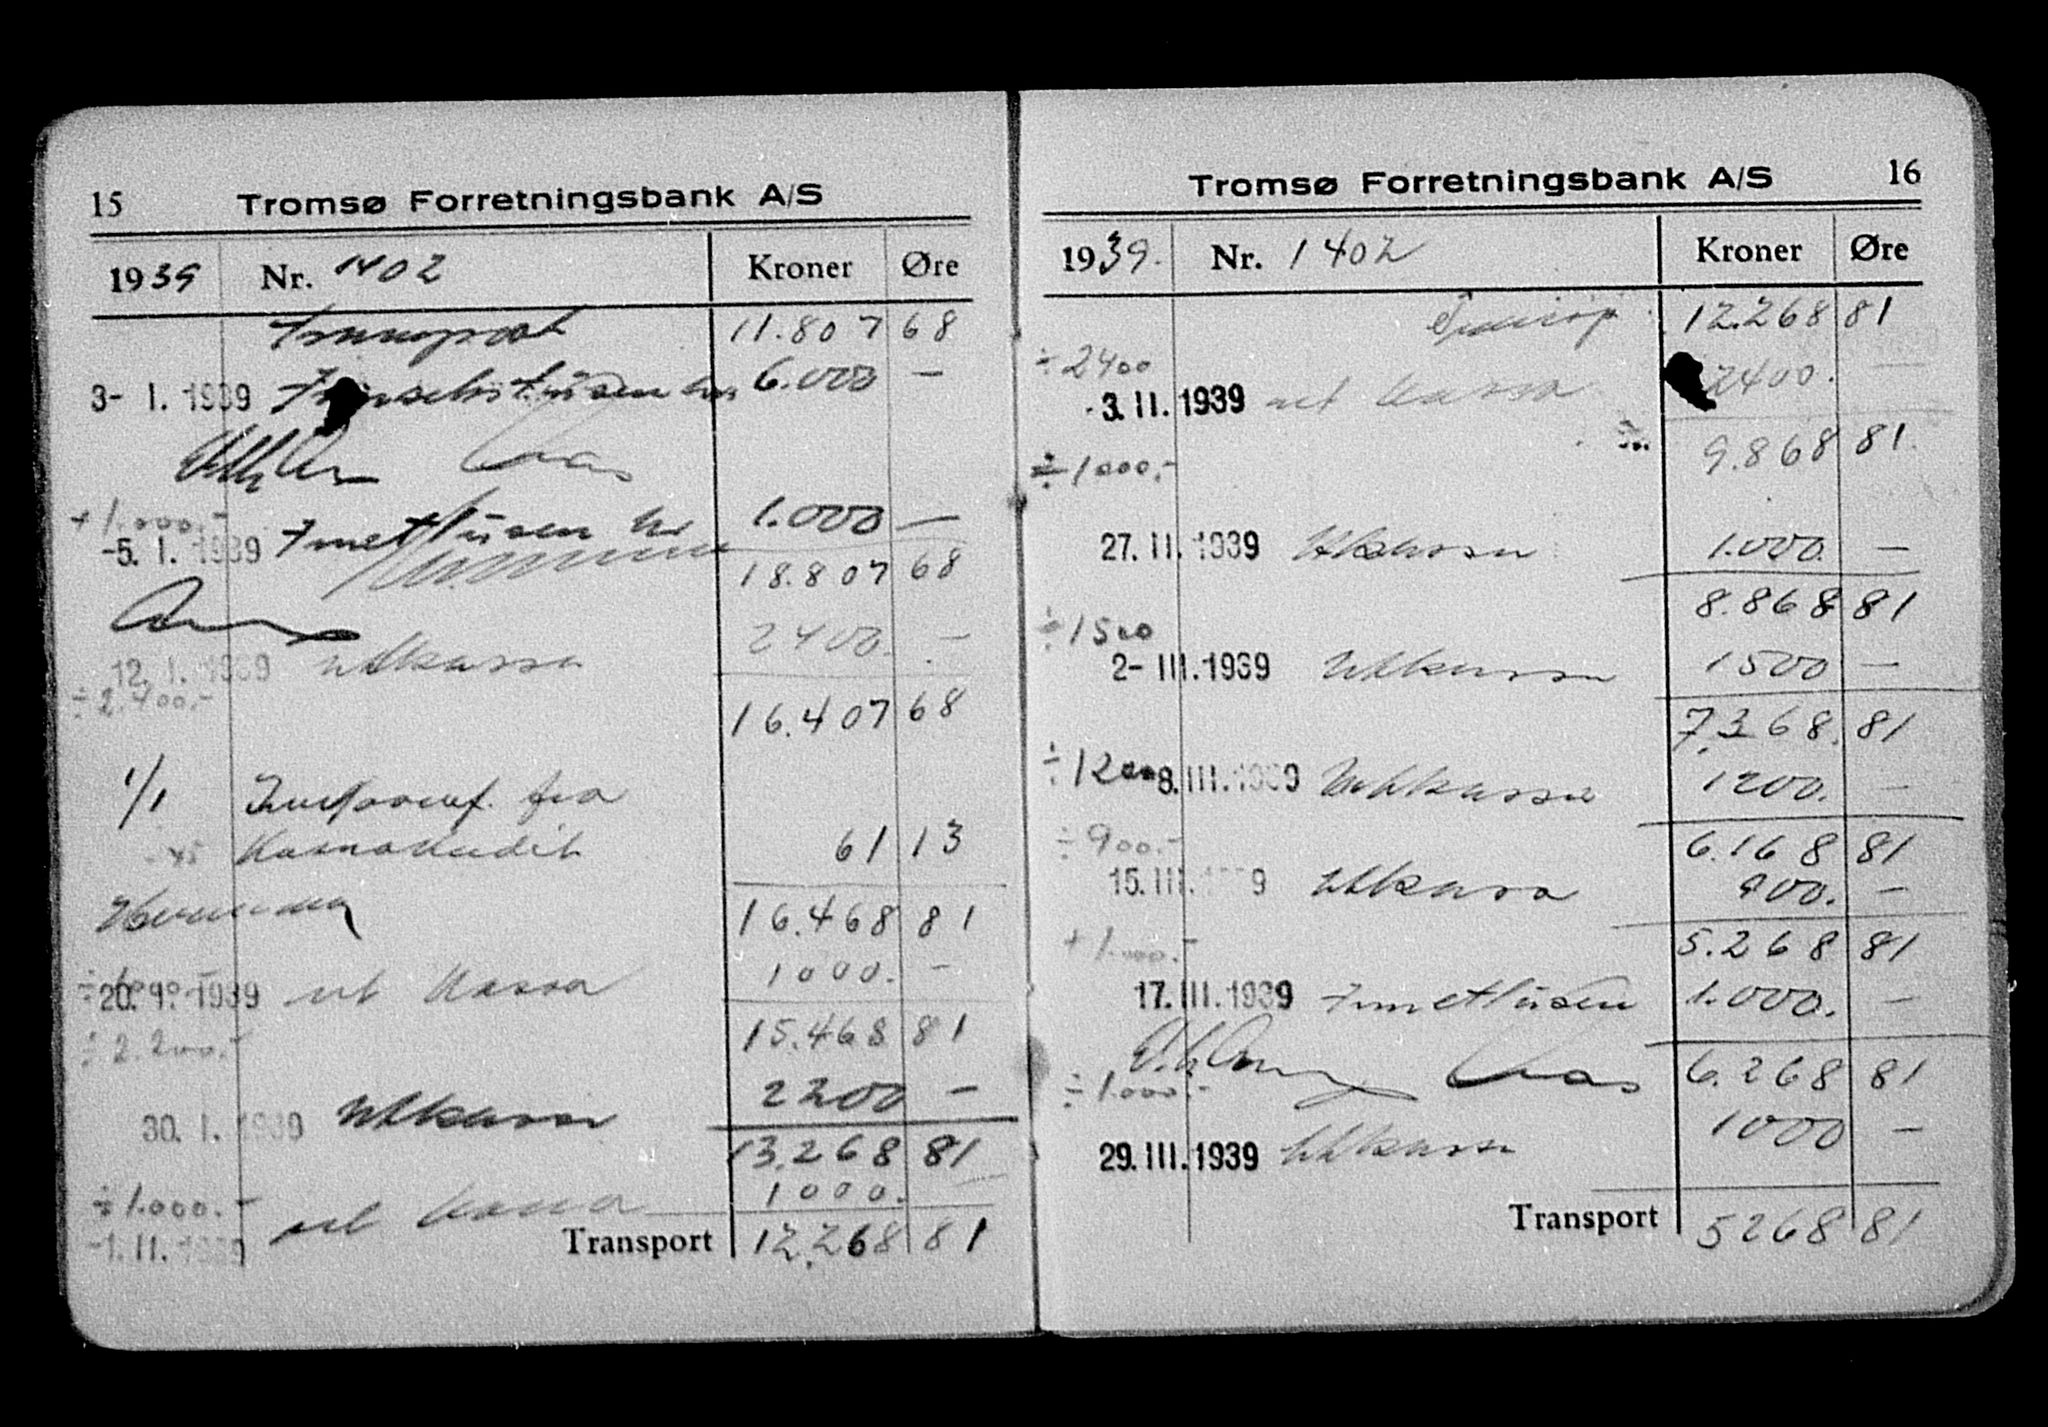 15 Tromsø Forretningsbank A/S
1939 Nr. 1402 Kroner Øre
Transport 11.807 68
3- I. 1939 6.000 —
+1.000.-
-5. I. 1939 Innettusen kr 1.000 —
18.807 68
12. I. 1939 utkassa 2400. -
÷2.400.-
16.407 68
1/1 fra
Kassakredit 61 13
16.468 81
20. I. 1939 ut Kassa 1000. -
15.468 81
÷2.200.-
30. I. 1939 Utkassa 2200 —
13.268 81
÷1.000.- 1000. —
-1. II. 1939 ut Kassa
Transport 12.268 81
Tromsø Forretningsbank A/S 16
1939. Nr. 1402 Kroner Øre
12.268 81
÷2400
-3. II. 1939 ut Kassa 2400. —
9.868 81.
÷1000.-
27. II. 1939 Utkassa 1.000. —
8.868 81
÷1500
2- III. 1939 Utkassa 1500 —
7.368. 81
÷1200 8. III. 1939 Utkassa 1200. —
6.168 81
÷900.-
15. III. 1939 Utkassa 900. —
5.268 81
+1.000.-
17. III. 1939 Innettusen 1.000. —
6.268 81
÷1.000.-
29. III. 1939 Utkassa 1000 —
Transport 5268 81